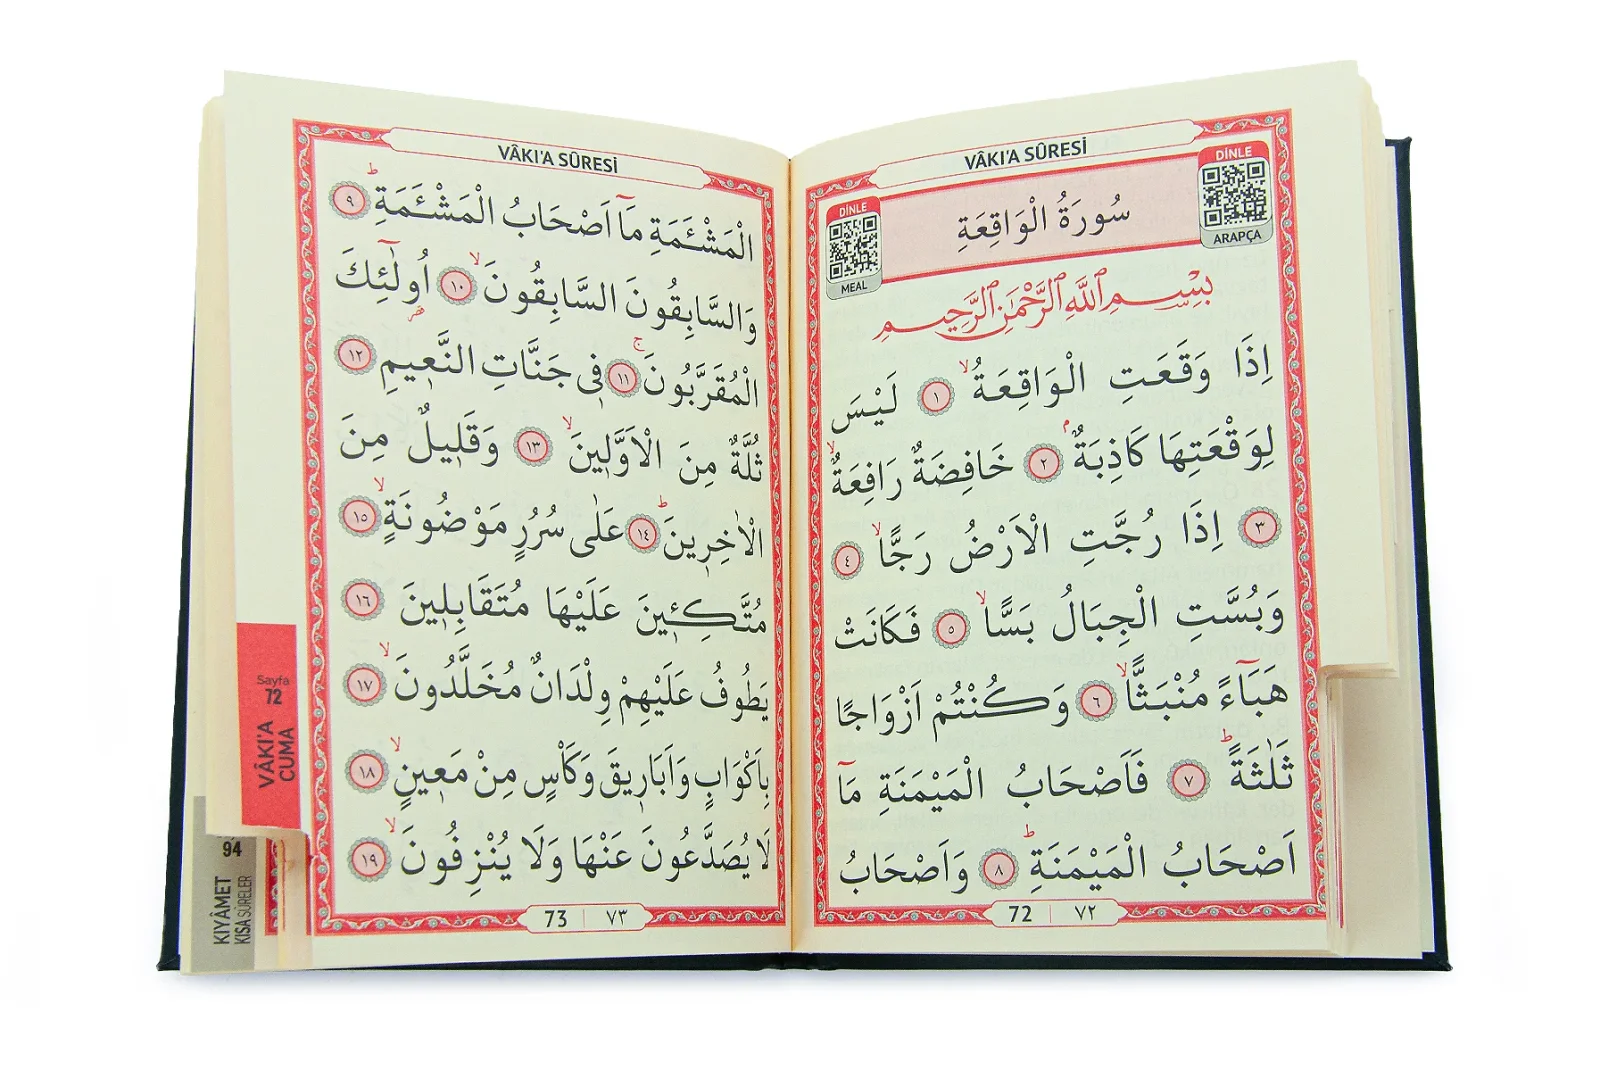 VÂKI'A SÛRESİ
DİNLE
ARAPÇA
سُورَةُ الْوَاقِعَةِ
DİNLE
MEAL
بِسْمِ اللهِ الرَّحْمٰنِ الرَّحِيمِ
اِذَا وَقَعَتِ الْوَاقِعَةُۙ ﴿١﴾ لَيْسَ
لِوَقْعَتِهَا كَاذِبَةٌۢ ﴿٢﴾ خَافِضَةٌ رَافِعَةٌۙ
﴿٣﴾ اِذَا رُجَّتِ الْاَرْضُ رَجًّاۙ ﴿٤﴾
وَبُسَّتِ الْجِبَالُ بَسًّاۙ ﴿٥﴾ فَكَانَتْ
هَبَٓاءً مُنْبَثًّاۙ ﴿٦﴾ وَكُنْتُمْ اَزْوَاجًا
ثَلٰثَةًۜ ﴿٧﴾ فَاَصْحَابُ الْمَيْمَنَةِ مَٓا
اَصْحَابُ الْمَيْمَنَةِۜ ﴿٨﴾ وَاَصْحَابُ
72 | ٧٢
VÂKI'A SÛRESİ
الْمَشْـَٔمَةِ مَٓا اَصْحَابُ الْمَشْـَٔمَةِۜ ﴿٩﴾
وَالسَّابِقُونَ السَّابِقُونَۙ ﴿١٠﴾ اُولٰٓئِكَ
الْمُقَرَّبُونَۚ ﴿١١﴾ فِي جَنَّاتِ النَّعِيمِ ﴿١٢﴾
ثُلَّةٌ مِنَ الْاَوَّلِينَۙ ﴿١٣﴾ وَقَلِيلٌ مِنَ
الْاٰخِرِينَۜ ﴿١٤﴾ عَلٰى سُرُرٍ مَوْضُونَةٍۙ ﴿١٥﴾
مُتَّكِـِٔينَ عَلَيْهَا مُتَقَابِلِينَ ﴿١٦﴾
يَطُوفُ عَلَيْهِمْ وِلْدَانٌ مُخَلَّدُونَۙ ﴿١٧﴾
بِاَكْوَابٍ وَاَبَارِيقَ وَكَأْسٍ مِنْ مَعِينٍۙ ﴿١٨﴾
لَا يُصَدَّعُونَ عَنْهَا وَلَا يُنْزِفُونَۙ ﴿١٩﴾
73 | ٧٣
Sayfa
72
VÂKI'A
CUMA
94
KIYÂMET
KISA SÛRELER